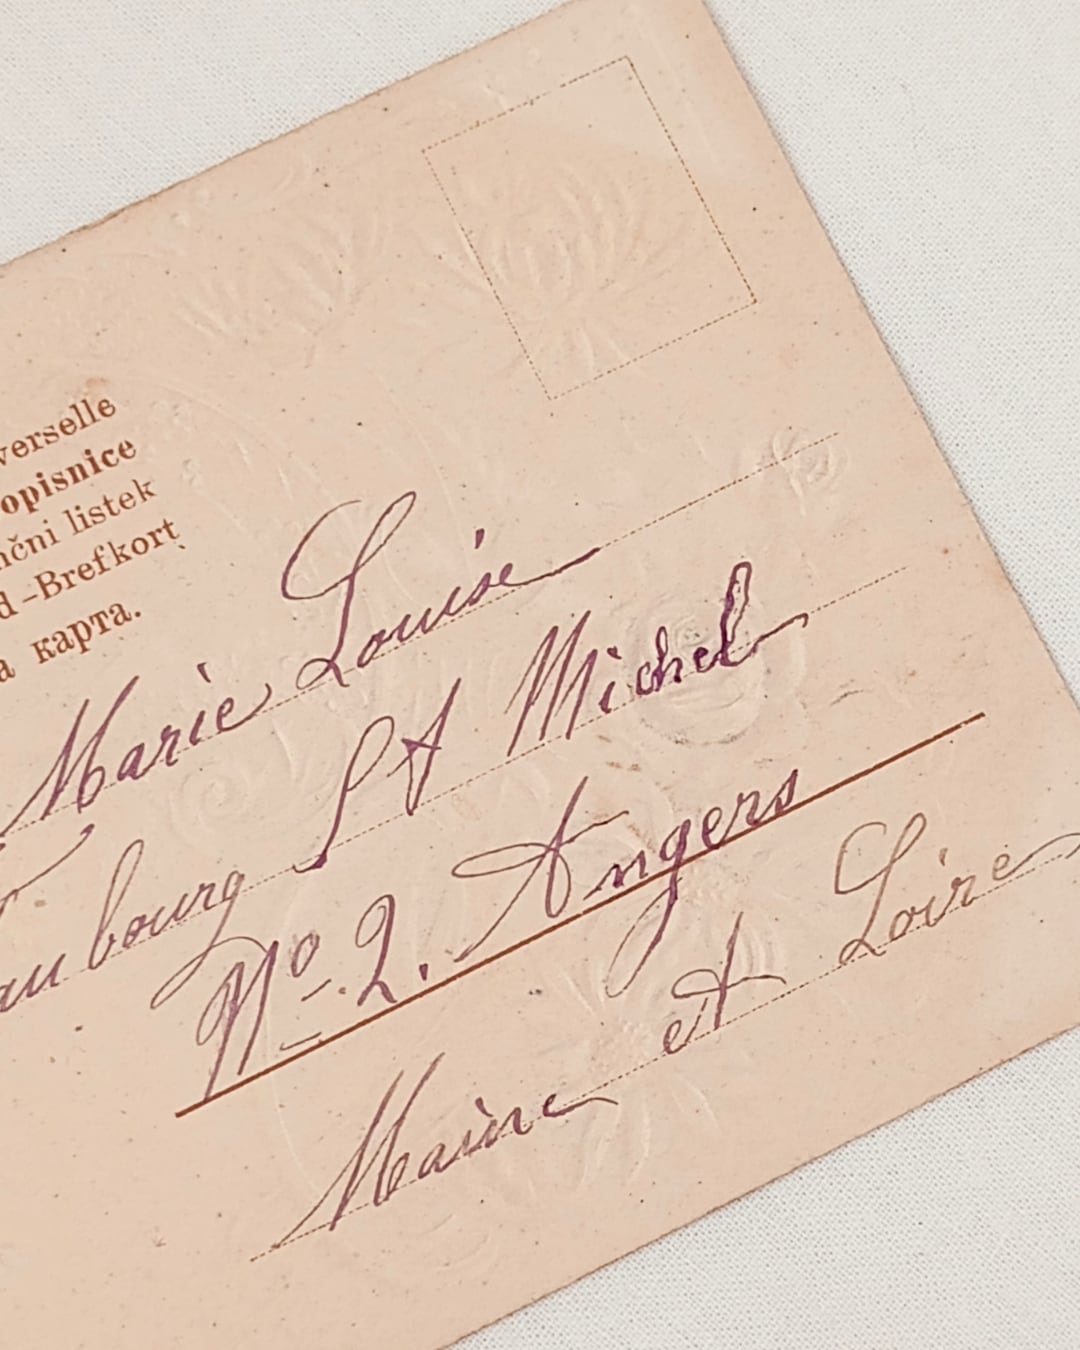 verselle
opisnice
nčni listek
d-Brefkort
а карта.
Marie Louise
aubourg St Michel
No 2. Angers
Maine et Loire